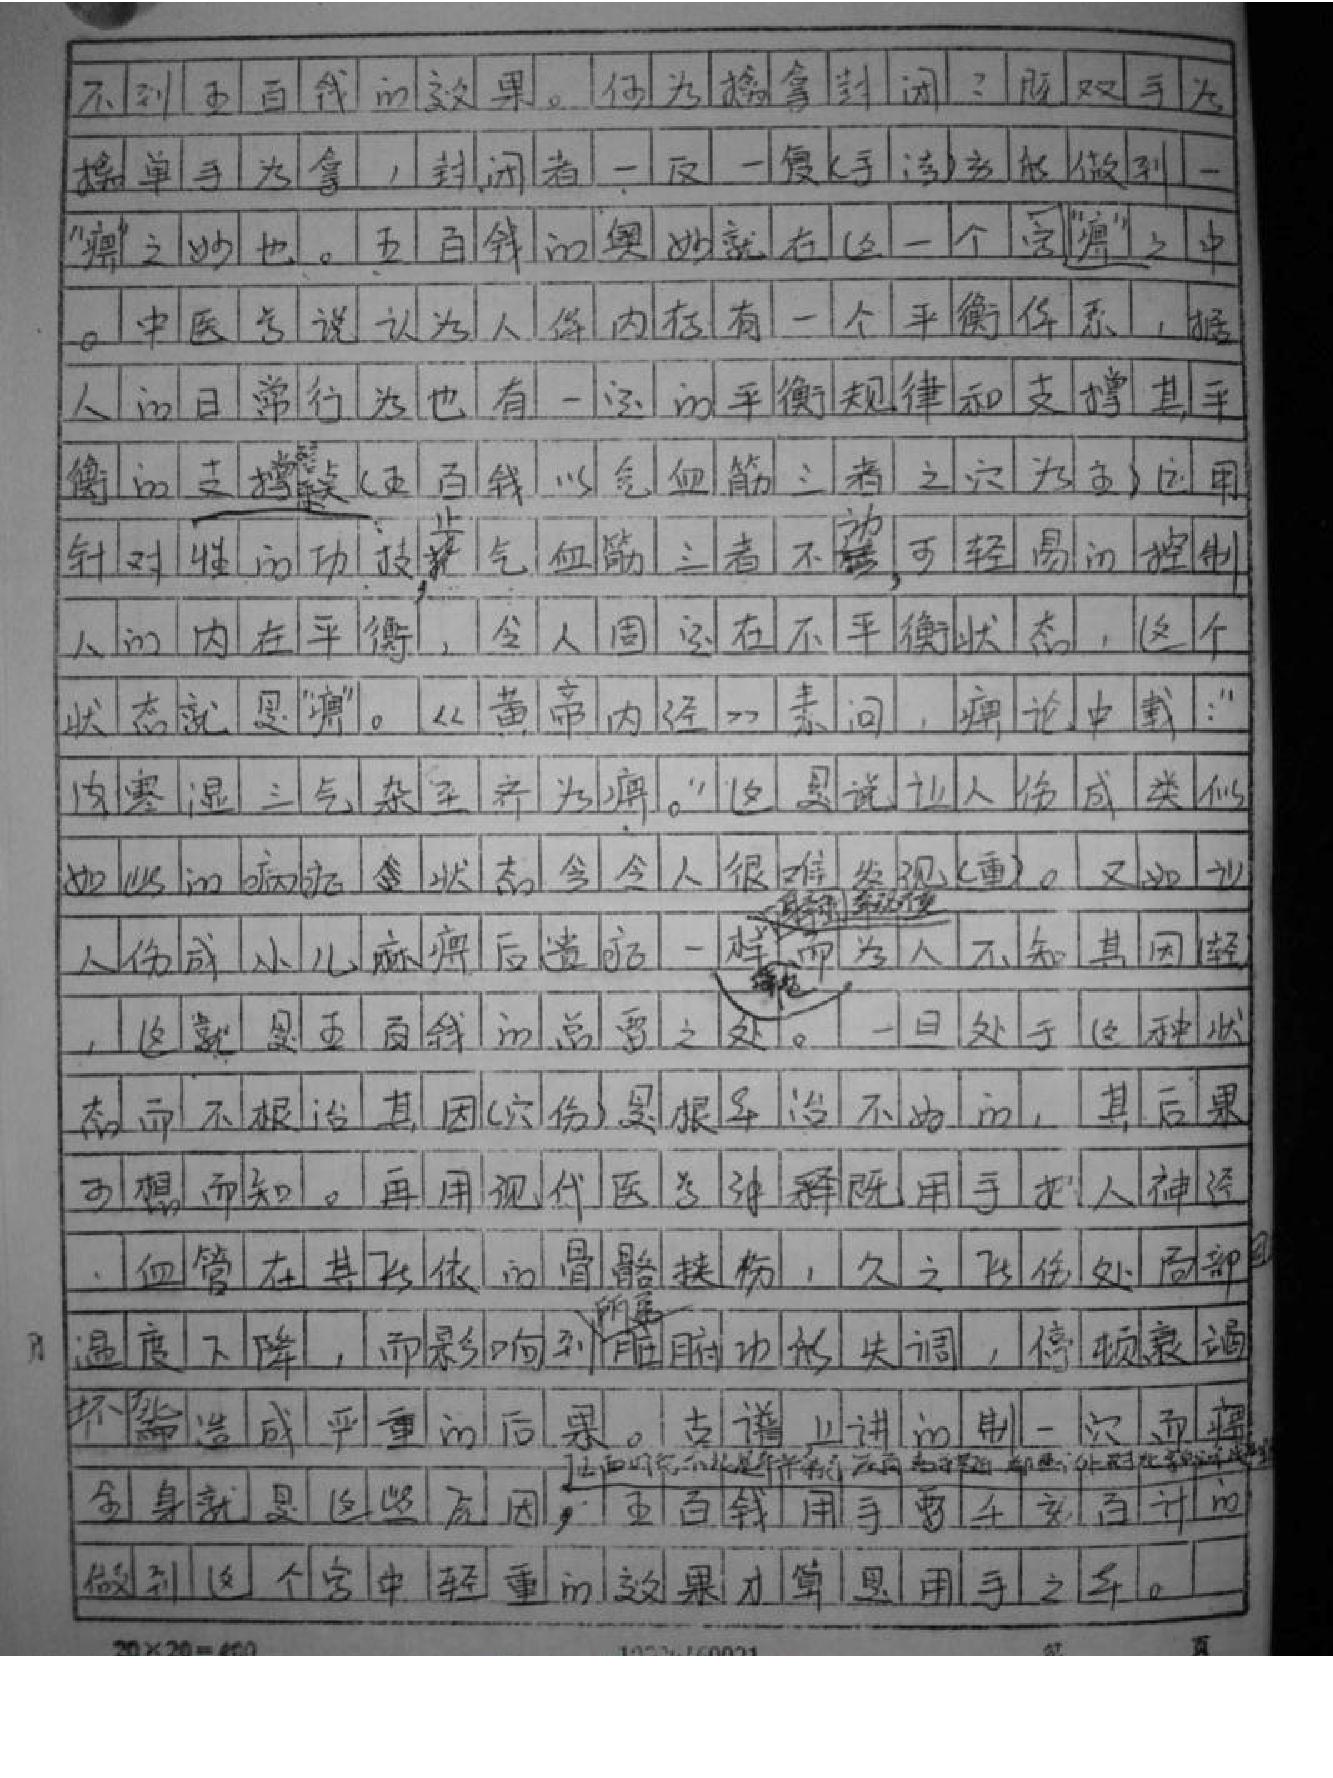 不到五百钱的效果。何为擒拿封闭？既双手为
擒单手为拿，封闭者一反一复（手法）方能做到一
"痹"之妙也。五百钱的奥妙就在这一个字"痹"之中
。中医学说认为人体内存有一个平衡体系，据
人的日常行为也有一定的平衡规律和支撑其平
衡的支撑点（五百钱以气血筋三者之穴为主）运用
针对性的功技，止气血筋三者不动，可轻易的控制
人的内在平衡，令人固定在不平衡状态，这个
状态就是"痹"。《黄帝内经》素问，痹论中载："
风寒湿三气杂至齐为痹。"这是说让人伤成类似
如此的病症状态令人很难发现（重）。又如让
人伤成小儿麻痹后遗症一样而为人不知其因轻
，这就是五百钱的总要之处。一旦处于这种状
态而不根治其因（穴伤）是根本治不好的，其后果
可想而知。再用现代医学讲释既用手把人神经
、血管在其所依的骨骼挟伤，久之所伤处局部
温度下降，而影响到所属脏腑功能失调，停顿衰竭
坏 造成严重的后果。古谱上讲的制一穴而痹
全身就是这些原因，五百钱用手要千方百计的
做到这个字中轻重的效果才算是用手之本。
20×20=400
页